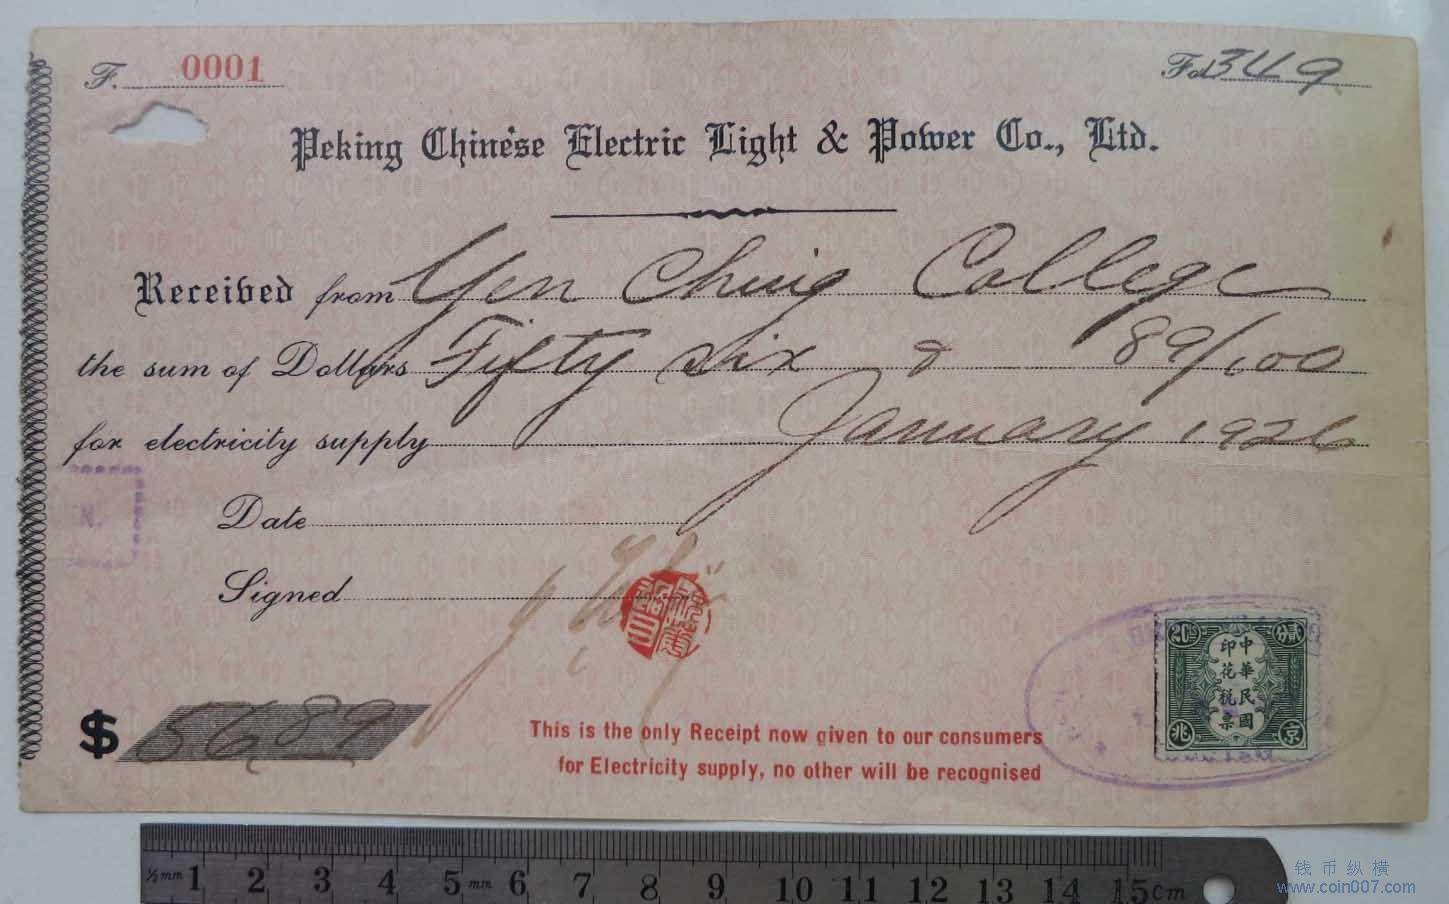 F. 0001
Fol 349
Peking Chinese Electric Light & Power Co., Ltd.
Received from Yen Ching College
the sum of Dollars Fifty six & 89/100
for electricity supply January 1926
Date
Signed
N.
$ 56.89
This is the only Receipt now given to our consumers
for Electricity supply, no other will be recognised
20 貳分
中華民國
印花稅票
京兆
½ mm 1 2 3 4 5 mm 6 7 8 9 10 11 12 13 14 15 cm
钱币纵横
www.coin007.com